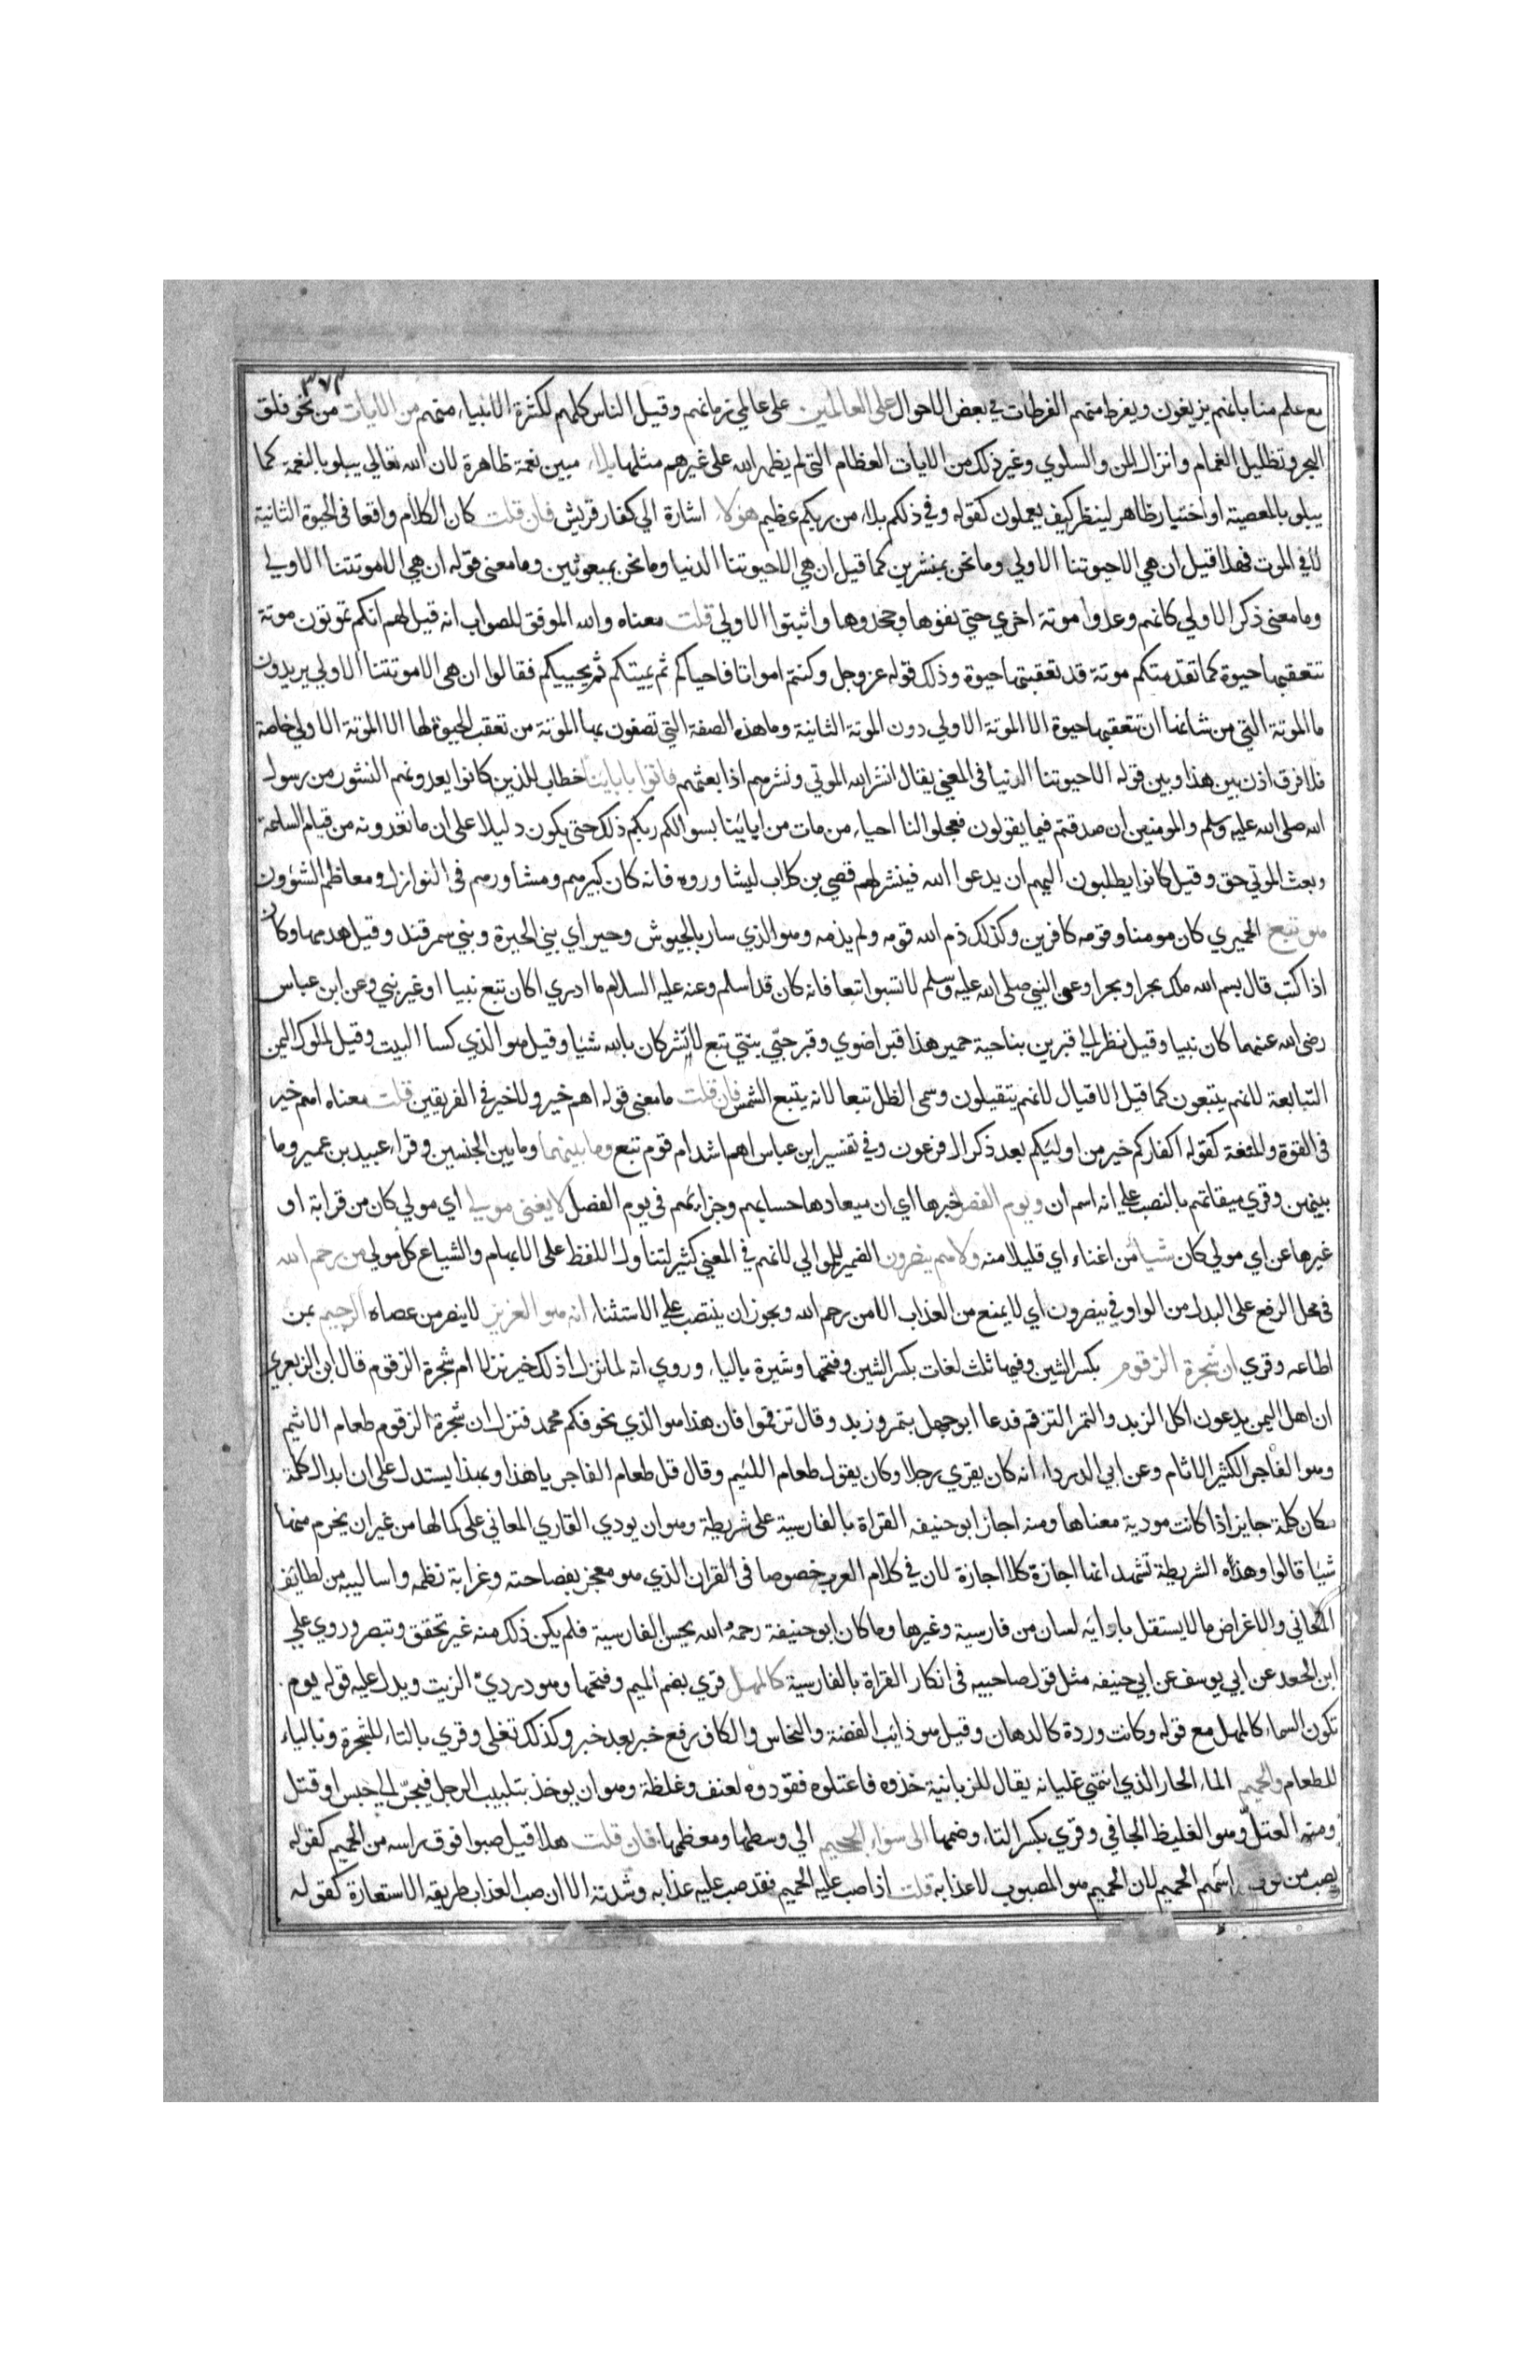 ٣٧٣
مع علم منا بانهم يزيغون ويفرط منهم الفرطات في بعض الاحوال على العالمين على عالمي زمانهم وقيل الناس كلهم لكثرة الانبياء منهم من الايات من نحو فلق
البحر وتظليل الغمام وانزال المن والسلوي وغير ذلك من الايات العظام التي لم يظهر الله على غيرهم مثلها بلاء مبين نعمة ظاهرة لان الله تعالي يبلو بالنعمة كما
يبلو بالمعصية او اختيار ظاهر لينظر كيف يعملون كقوله وفي ذلكم بلاء من ربكم عظيم هؤلاء اشارة الي كفار قريش فان قلت كان الكلام واقعا في الحيوة الثانية
لا في الموت فهلا قيل ان هي الا حيوتنا الاولي وما نحن بمنشرين كما قيل ان هي الا حيوتنا الدنيا وما نحن بمبعوثين وما معنى قوله ان هي الا موتتنا الاولي
وما معنى ذكر الاولي كانهم وعدوا موتة اخري حتي نفوها وجحدوها واثبتوا الاولي قلت معناه والله الموفق للصواب انه قيل لهم انكم تموتون موتة
تتعقبها حيوة كما تقدمتكم موتة قد تعقبتها حيوة وذلك قوله عز وجل وكنتم امواتا فاحياكم ثم يميتكم ثم يحييكم فقالوا ان هي الا موتتنا الاولي يريدون
ما الموتة التي من شانها ان تتعقبها حيوة الا الموتة الاولي دون الموتة الثانية وما هذه الصفة التي تصفون بها الموتة من تعقب الحيوة لها الا الموتة الاولي خاصة
فلا فرق اذن بين هذا وبين قوله الا حيوتنا الدنيا في المعني يقال انشر الله الموتي ونشرهم اذا بعثهم فاتوا بابائنا خطاب للذين كانوا يعدونهم النشور من رسول
الله صلى الله عليه وسلم والمومنين ان صدقتم فيما يقولون فعجلوا لنا احياء من مات من ابائنا بسوالكم ربكم ذلك حتى يكون دليلا على ان ما تعدونه من قيام الساعة
وبعث الموتي حق وقيل كانوا يطلبون اليهم ان يدعوا الله فينشر لهم قصي بن كلاب ليشاوروه فانه كان كبيرهم ومشاورهم في النوازل ومعاظم الشؤون
هو تبع الحميري كان مومنا وقومه كافرين وكذلك ذم الله قومه ولم يذمه وهو الذي سار بالجيوش وحير اي بني الحيرة وبني سمرقند وقيل هدمها وكان
اذا كتب قال بسم الله ملك بحرا وبحرا وعن النبي صلى الله عليه وسلم لا تسبوا تبعا فانه كان قد اسلم وعنه عليه السلام ما ادري اكان تبع نبيا او غير نبي وعن ابن عباس
رضى الله عنهما كان نبيا وقيل نظر الي قبرين بناحية حمير هذا قبر اضوي وقبر حبّي بنتي تبع لا تشركان بالله شيا وقيل هو الذي كسا البيت وقيل لملوك اليمن
التبابعة لانهم يتبعون كما قيل الاقيال لانهم يتقيلون وسمى الظل تبعا لانه يتبع الشمس فان قلت ما معنى قوله اهم خير ولا خير في الفريقين قلت معناه اهم خير
في القوة والمنعة كقوله اكفاركم خير من اولئكم بعد ذكر ال فرعون وفي تفسير ابن عباس اهم اشد ام قوم تبع وما بينهما وما بين الجنسين وقراء عبيد بن عمير وما
بينهن وقري ميقاتهم بالنصب علي انه اسم ان ويوم الفصل خبرها اي ان ميعادها حسابهم وجزائهم في يوم الفصل لا يغني مولي اي مولي كان من قرابة او
غيرها عن اي مولي كان شيا من اغناء اي قليلا منه ولا هم ينصرون الضمير للموالي لانهم في المعني كثير لتناول اللفظ على الابهام والشياع كل مولي من رحم الله
في محل الرفع على البدل من الواو في ينصرون اي لا يمنع من العذاب الا من رحم الله ويجوز ان ينتصب علي الاستثناء انه هو العزيز لا ينصر من عصاه الرحيم بمن
اطاعه وقري ان شجرة الزقوم بكسر الشين وفيها ثلث لغات بكسر الشين وفتحها وشيرة بالياء وروي انه لما نزل اذلك خير نزلا ام شجرة الزقوم قال ابن الزبعري
ان اهل اليمن يدعون اكل الزبد والتمر التزقم فدعا ابو جهل بتمر وزبد وقال تزقموا فان هذا هو الذي يخوفكم محمد فنزل ان شجرة الزقوم طعام الاثيم
وهو الفاجر الكثير الاثام وعن ابي الدرداء انه كان يقري رجلا وكان يقول طعام اللئيم وقال قل طعام الفاجر يا هذا وبهذا يستدل على ان ابدال كلمة
مكان كلمة جايز اذا كانت مودية معناها ومنه اجاز ابو حنيفه القراة بالفارسية على شريطة وهو ان يودي القاري المعاني على كمالها من غير ان يخرم منها
شيا قالوا وهذه الشريطة تشهد انها اجازة كلا اجازة لان في كلام العرب خصوصا في القران الذي هو معجز بفصاحته وغرابة نظمه واساليبه من لطائف
المعاني والاغراض ما لا يستقل بادائه لسان من فارسية وغيرها وما كان ابو حنيفة رحمه الله يحسن الفارسية فلم يكن ذلك منه غير تحقق وتبصر وروي علي
ابن الجعد عن ابي يوسف عن ابي حنيفه مثل قول صاحبيه في انكار القراة بالفارسية كالمهل قري بضم الميم وفتحها وهو دردي الزيت ويدل عليه قوله يوم
تكون السماء كالمهل مع قوله وكانت وردة كالدهان وقيل هو ذائب الفضة والنحاس والكاف رفع خبر بعد خبر وكذلك تغلي وقري بالتاء للشجرة وبالياء
للطعام والحميم الماء الحار الذي انتهي غليانه يقال للزبانية خذوه فاعتلوه فقودوه لعنف وغلظة وهو ان يوخذ بتلبيب الرجل فيجرّ الي حبس او قتل
ومنه العتلّ وهو الغليظ الجافي وقري بكسر التاء وضمها الى سواء الجحيم الي وسطها ومعظمها فان قلت هلا قيل صبوا فوق راسه من الحميم كقوله
يصب من فوق راسهم الحميم لان الحميم هو المصبوب لا عذابه قلت اذا صب عليه الحميم فقد صب عليه عذابه وشدته الا ان صب العذاب طريقه الاستعارة كقوله